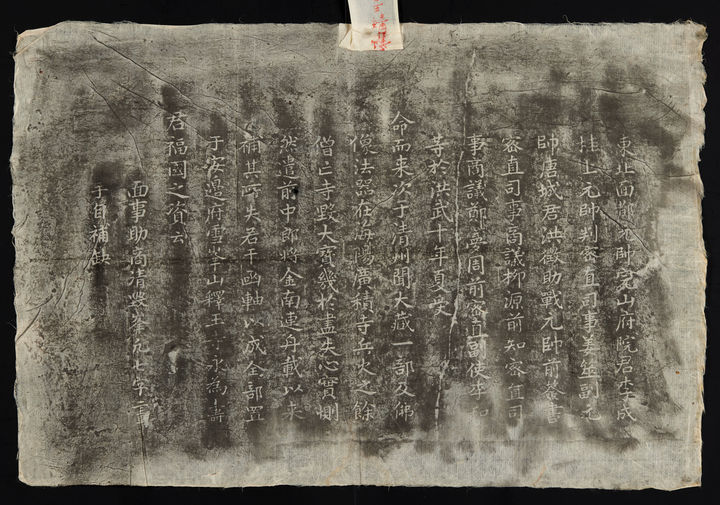 東北面都元帥完山府院君李成
桂上元帥判密直司事姜筮副元
帥唐城君洪徵助戰元帥前簽書
密直司事商議柳源前知密直司
事商議鄭夢周前密直副使李和
等於洪武十年夏受
命而来次于清州聞大藏一部及佛
像法器在海陽廣積寺兵火之餘
僧亡寺毀大寶幾於盡失心實惻
然遣前中郎將金南連舟載以来
補其所失若干函軸以成全部置
于安邊府雪峯山釋王寺永為壽
君福國之資云
面事助商清豐峯九七字軍
于自補缺